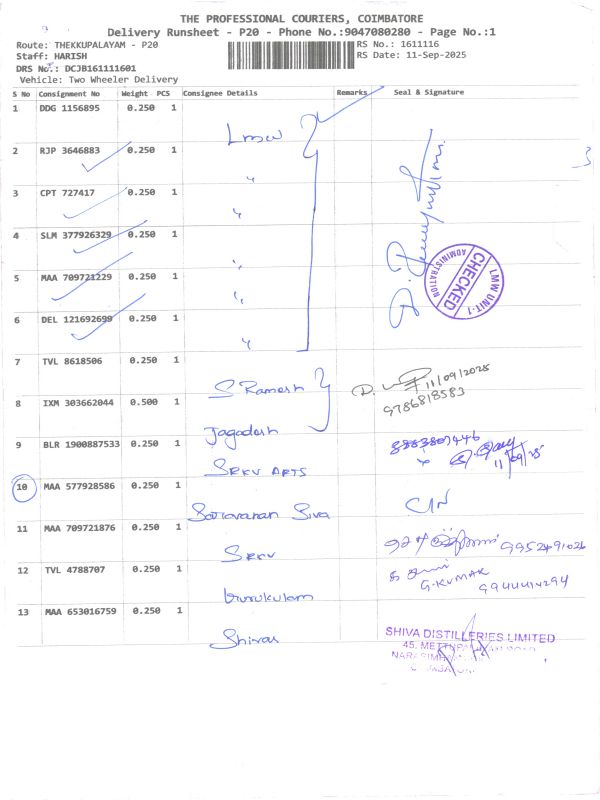 THE PROFESSIONAL COURIERS, COIMBATORE
Delivery Runsheet - P20 - Phone No.:9047080280 - Page No.:1
Route: THEKKUPALAYAM - P20
RS No.: 1611116
Staff: HARISH
RS Date: 11-Sep-2025
DRS No.: DCJB161111601
Vehicle: Two Wheeler Delivery
S No Consignment No Weight PCS Consignee Details Remarks Seal & Signature
1 DDG 1156895 0.250 1
Lmw
2 RJP 3646883 0.250 1
"
3 CPT 727417 0.250 1
"
4 SLM 377926329 0.250 1
"
5 MAA 709721229 0.250 1
"
6 DEL 121692699 0.250 1
"
LMW UNIT-1
CHECKED
ADMINISTRATION
7 TVL 8618506 0.250 1
S Ramesh
11/09/2025
9786818583
8 IXM 303662044 0.500 1
Jagadesh
9 BLR 1900887533 0.250 1
SRKV ARTS
11/09/25
10 MAA 577928586 0.250 1
Saravanan Siva
C/N
11 MAA 709721876 0.250 1
SRKV
9952491026
12 TVL 4788707 0.250 1
Gurukulam
G.KUMAR
9944414294
13 MAA 653016759 0.250 1
Shivas
SHIVA DISTILLERIES LIMITED
45,